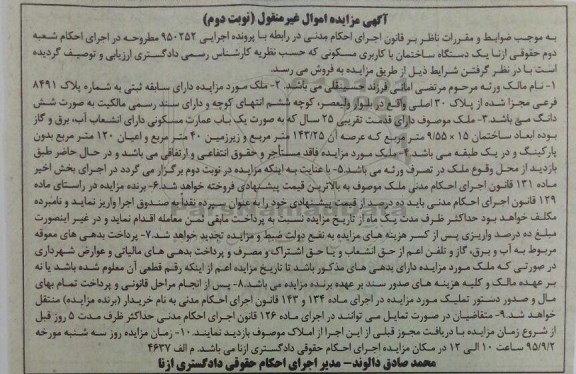 آگهی مزایده اموال غیرمنقول (نوبت دوم)
به موجب ضوابط و مقررات ناظر بر قانون اجرای احکام مدنی در رابطه با پرونده اجرایی ۹۵۰۲۵۲ مطروحه در اجرای احکام شعبه
دوم حقوقی ازنا یک دستگاه ساختمان با کاربری مسکونی که حسب نظریه کارشناس رسمی دادگستری ارزیابی و توصیف گردیده
است با در نظر گرفتن شرایط ذیل از طریق مزایده به فروش می رسد.
۱- نام مالک ورثه مرحوم مرتضی امانی فرزند حسینقلی می باشد. ۲- ملک مورد مزایده دارای سابقه ثبتی به شماره پلاک ۸۴۹۱
فرعی مجزا شده از پلاک ۳۰ اصلی واقع در بلوار ولیعصر، کوچه ششم انتهای کوچه و دارای سند رسمی مالکیت به صورت شش
دانگ می باشد. ۳- ملک موصوف دارای قدمت تقریبی ۲۵ سال که به صورت یک باب عمارت مسکونی دارای انشعاب آب، برق و گاز
بوده ابعاد ساختمان ۱۵ × ۹/۵۵ متر مربع که عرصه آن ۱۴۳/۲۵ متر مربع و زیرزمین ۴۰ متر مربع و اعیان ۱۲۰ متر مربع بدون
پارکینگ و در یک طبقه می باشد. ۴- ملک مورد مزایده فاقد مستاجر و حقوق انتفاعی و ارتفاقی می باشد و در حال حاضر طبق
بازدید از محل وقوع ملک در تصرف ورثه می باشد. ۵- با عنایت به اینکه مزایده در نوبت دوم برگزار می گردد در اجرای بخش اخیر
ماده ۱۳۱ قانون اجرای احکام مدنی ملک موصوف به بالاترین قیمت پیشنهادی فروخته خواهد شد. ۶- برنده مزایده در راستای ماده
۱۲۹ قانون اجرای احکام مدنی باید ده درصد از قیمت پیشنهادی خود را به عنوان سپرده نقدا به صندوق اجرا واریز نماید و نامبرده
مکلف خواهد بود حداکثر ظرف مدت یک ماه از تاریخ مزایده نسبت به پرداخت مابقی ثمن معامله اقدام نماید و در غیر اینصورت
مبلغ ده درصد واریزی پس از کسر هزینه های مزایده به نفع دولت ضبط و مزایده تجدید خواهد شد. ۷- پرداخت بدهی های معوقه
مربوط به آب و برق، گاز و تلفن اعم از حق انشعاب و یا حق اشتراک و مصرف و پرداخت بدهی های مالیاتی و عوارض شهرداری
در صورتی که ملک مورد مزایده دارای بدهی های مذکور باشد تا تاریخ مزایده اعم از اینکه رقم قطعی آن معلوم شده باشد یا نه
بر عهده مالک و کلیه هزینه های صدور سند بر عهده برنده مزایده می باشد. ۸- پس از انجام مراحل قانونی و پرداخت تمام بهای
مال و صدور دستور تملیک مورد مزایده در اجرای ماده ۱۳۴ و ۱۴۳ قانون اجرای احکام مدنی به نام خریدار (برنده مزایده) منتقل
خواهد شد. ۹- متقاضیان در صورت تمایل می توانند در اجرای ماده ۱۲۶ قانون اجرای احکام مدنی حداکثر ظرف مدت ۵ روز قبل
از شروع زمان مزایده با دریافت مجوز قبلی از این اجرا از املاک موصوف بازدید نمایند. ۱۰- زمان مزایده روز سه شنبه مورخه
۹۵/۹/۲ ساعت ۱۰ الی ۱۲ در مکان مزایده اجرای احکام حقوقی دادگستری ازنا می باشد. م الف ۴۶۳۷
محمد صادق دالوند- مدیر اجرای احکام حقوقی دادگستری ازنا